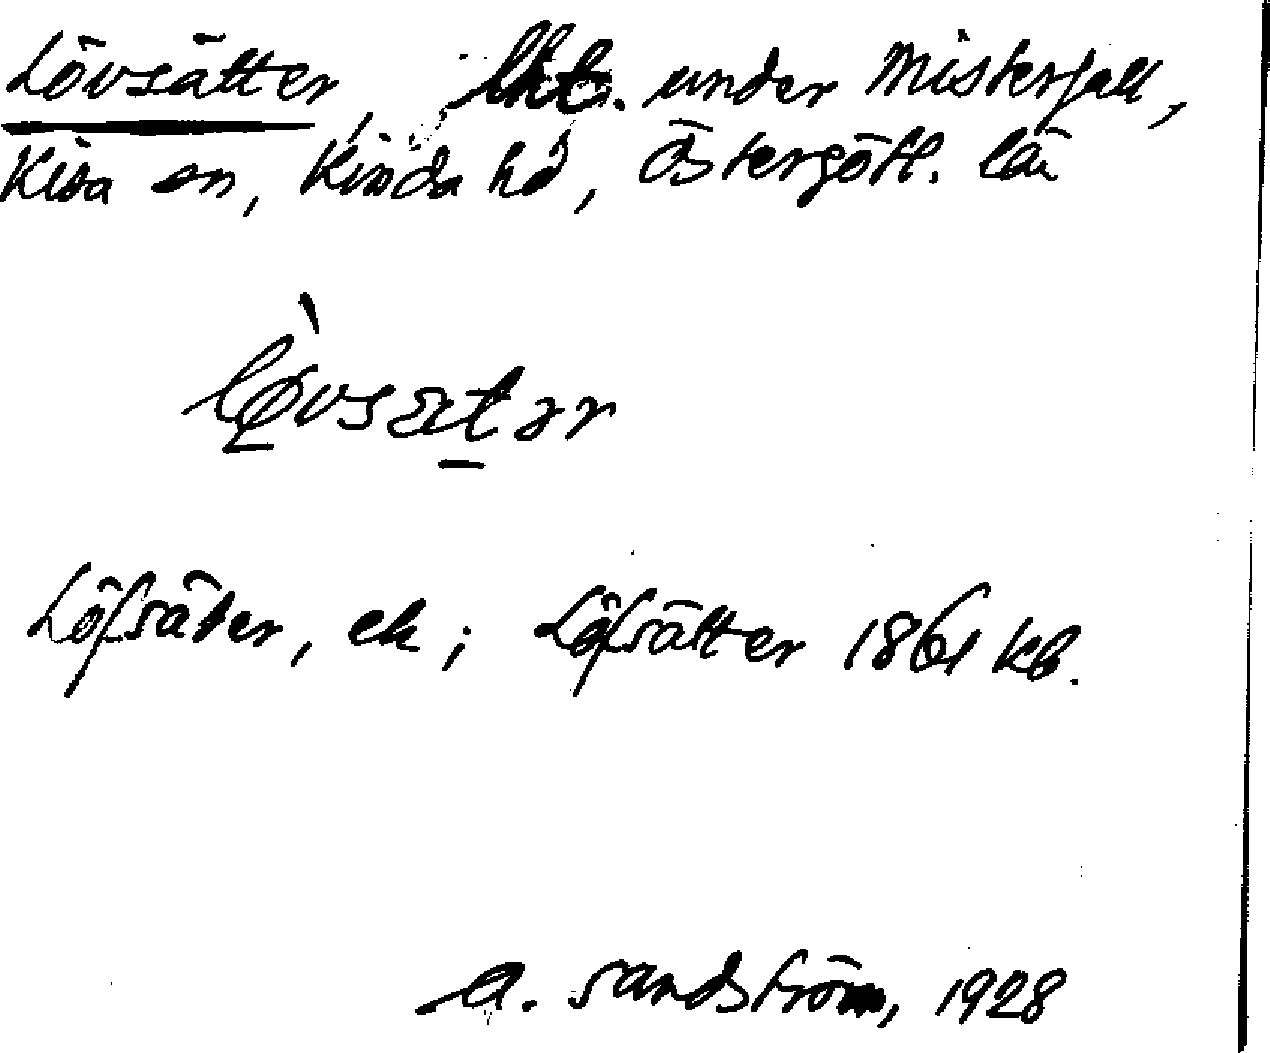 Lövsätter, lht. under Misterfall,
Kisa sn, Kinda hd, Östergötl. län
lø̀vsætər
Löfsäter, ek; Löfsätter 1861 kb.
A. Sandström, 1928